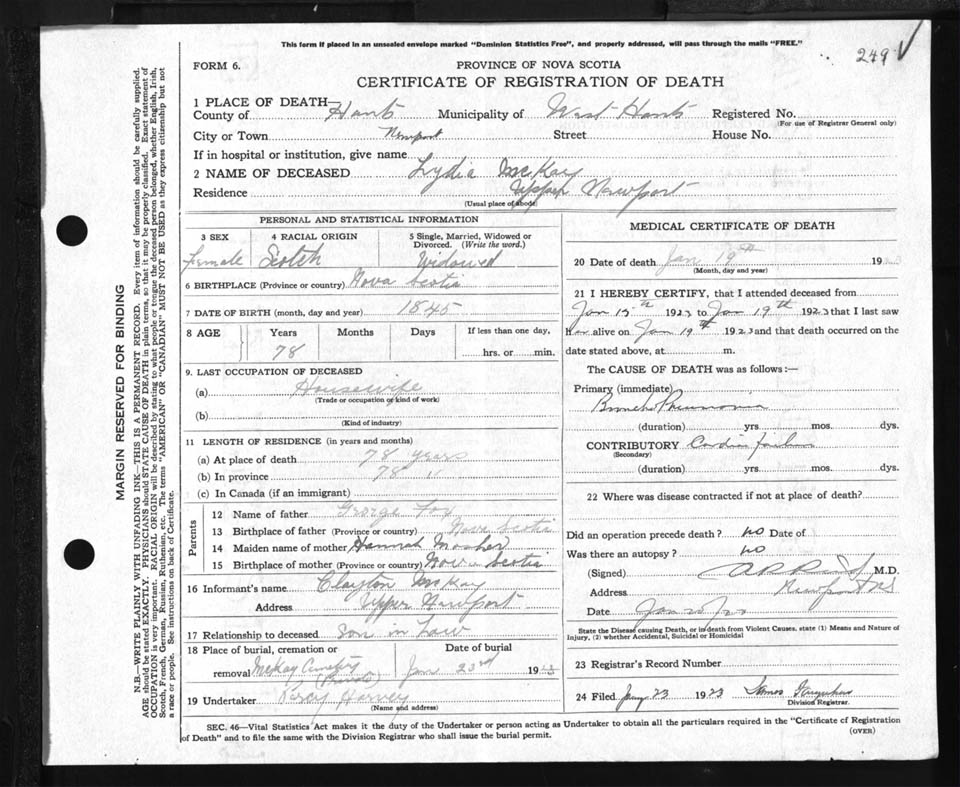 This form if placed in an unsealed envelope marked "Dominion Statistics Free", and properly addressed, will pass through the mails "FREE."
249 ✓
FORM 6.
PROVINCE OF NOVA SCOTIA
CERTIFICATE OF REGISTRATION OF DEATH
1 PLACE OF DEATH—
County of Hants Municipality of West Hants Registered No.
(For use of Registrar General only)
City or Town Newport Street House No.
If in hospital or institution, give name
2 NAME OF DECEASED Lydia McKay
Residence Upper Newport
(Usual place of abode)
PERSONAL AND STATISTICAL INFORMATION
3 SEX 4 RACIAL ORIGIN 5 Single, Married, Widowed or Divorced. (Write the word.)
female Scotch Widowed
6 BIRTHPLACE (Province or country) Nova Scotia
7 DATE OF BIRTH (month, day and year) 1845
8 AGE Years Months Days If less than one day,
78 hrs. or min.
9. LAST OCCUPATION OF DECEASED
(a) Housewife
(Trade or occupation or kind of work)
(b)
(Kind of industry)
11 LENGTH OF RESIDENCE (in years and months)
(a) At place of death 78 years
(b) In province 78 "
(c) In Canada (if an immigrant)
Parents
12 Name of father George Fox
13 Birthplace of father (Province or country) Nova Scotia
14 Maiden name of mother Hannah Mosher
15 Birthplace of mother (Province or country) Nova Scotia
16 Informant's name Clayton McKay
Address Upper Newport
17 Relationship to deceased Son in Law
18 Place of burial, cremation or Date of burial
removal McKay Cemetery (Private) Jan 23rd 1923
19 Undertaker Percy Harvey
(Name and address)
MEDICAL CERTIFICATE OF DEATH
20 Date of death Jan 19th 1923
(Month, day and year)
21 I HEREBY CERTIFY, that I attended deceased from
Jan 15th 1923 to Jan 19th 1923 that I last saw
her alive on Jan 19th 1923 and that death occurred on the
date stated above, at m.
The CAUSE OF DEATH was as follows:—
Primary (immediate)
Broncho Pneumonia
(duration) yrs. mos. dys.
CONTRIBUTORY Cardiac failure
(Secondary)
(duration) yrs. mos. dys.
22 Where was disease contracted if not at place of death?
Did an operation precede death? no Date of
Was there an autopsy? no
(Signed) M.D.
Address Newport NS
Date Jan 20
State the Disease causing Death, or in death from Violent Causes, state (1) Means and Nature of Injury, (2) whether Accidental, Suicidal or Homicidal
23 Registrar's Record Number
24 Filed Jany 23 1923 James
Division Registrar.
SEC. 46—Vital Statistics Act makes it the duty of the Undertaker or person acting as Undertaker to obtain all the particulars required in the "Certificate of Registration
of Death" and to file the same with the Division Registrar who shall issue the burial permit.
(OVER)
MARGIN RESERVED FOR BINDING
N.B.—WRITE PLAINLY WITH UNFADING INK—THIS IS A PERMANENT RECORD. Every item of information should be carefully supplied.
AGE should be stated EXACTLY. PHYSICIANS should STATE CAUSE OF DEATH in plain terms, so that it may be properly classified. Exact statement of
OCCUPATION is very important. RACIAL ORIGIN will be described by stating to what people or tongue the deceased person belonged, whether English, Irish,
Scotch, French, German, Russian, Ruthenian, etc. The terms "AMERICAN" OR "CANADIAN" MUST NOT BE USED as they express citizenship but not
a race or people. See instructions on back of Certificate.